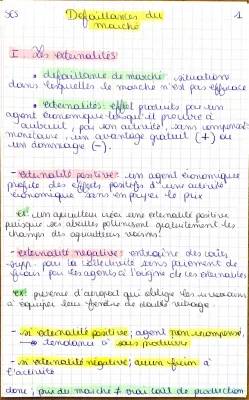 SES Défaillances du 1
marché
I - Les externalités
• défaillance de marché : situations
dans lesquelles le marché n'est pas efficace
• externalités : effet produits par un
agent économique lorsqu'il procure à
autrui, par son activité, sans compensat°
monétaire, un avantage gratuit (+) ou
un dommage (-).
- externalité positive : un agent économique
profite des effets positifs d'une activité
économique sans en payer le prix
ex : un apiculteur crée une externalité positive
puisque ses abeilles pollinisent gratuitement les
champs des agriculteurs voisins.
- externalité négative : entraîne des coûts
supp. pour la collectivité sans paiement de
par les agents à l'origine de ces externalités
ex : présence d'aéroport qui oblige les riverains
à équiper leur fenêtre de double vitrage
- si externalité positive ; agent non récompensé,
→ tendance à sous produire
- si externalité négative ; aucun frein à
l'activité
donc ; prix du marché ≠ vrai coût de production